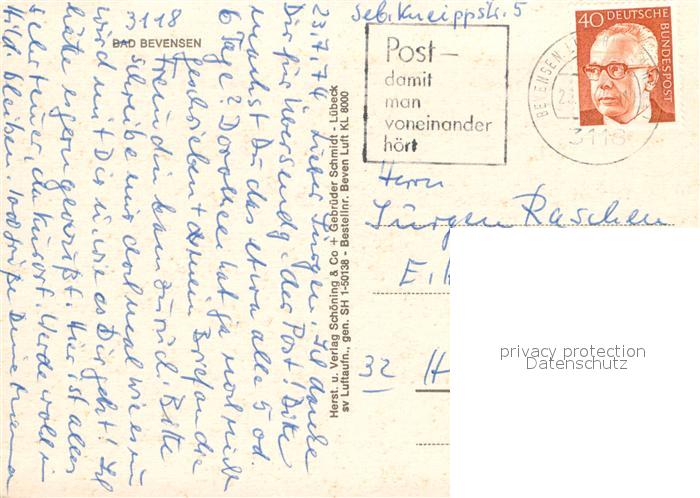 3118
BAD BEVENSEN
23.7.74 Lieber Jürgen. Ich danke
Dir für Übersendg. der Post! Bitte
machst Du das etwa alle 5 od.
6 Tage? Dorothee hat ja noch nicht
geschrieben +
Freundin kam zurück! Bitte
schreibe mir doch mal wie es nun
wird mit Dir u. wie es Dir geht! Ich
hätte es gern gewußt. Hier ist alles
sehr teuer, da Kurort. Werde wohl in
bleiben.
Herst. u. Verlag Schöning & Co + Gebrüder Schmidt - Lübeck
sv Luftaufn., gen. SH 1-50138 - Bestellnr. Beven Luft KL 8000
Seb. Kneippstr. 5
Post–
damit
man
voneinander
hört
BEVENSEN
3118
40 DEUTSCHE
BUNDESPOST
Herrn
Jürgen Raschen
32 H
privacy protection
Datenschutz